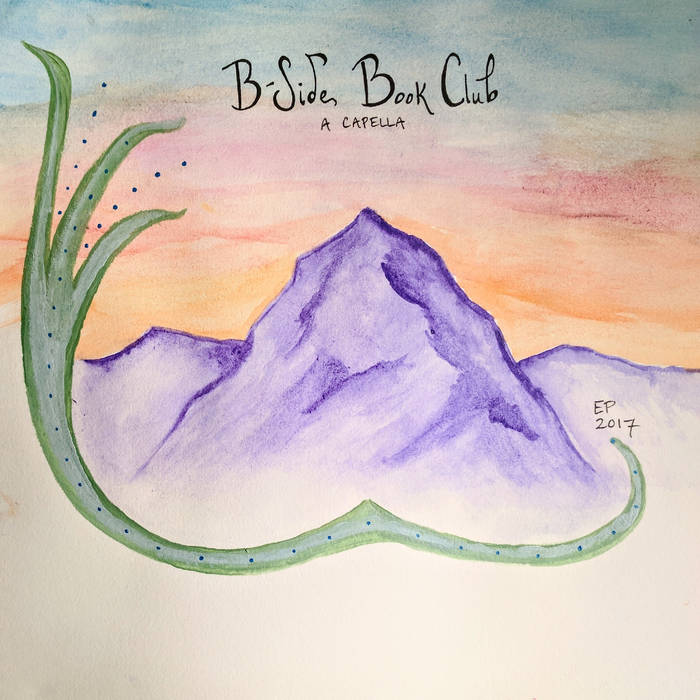 B-Side Book Club
A CAPELLA
EP
2017